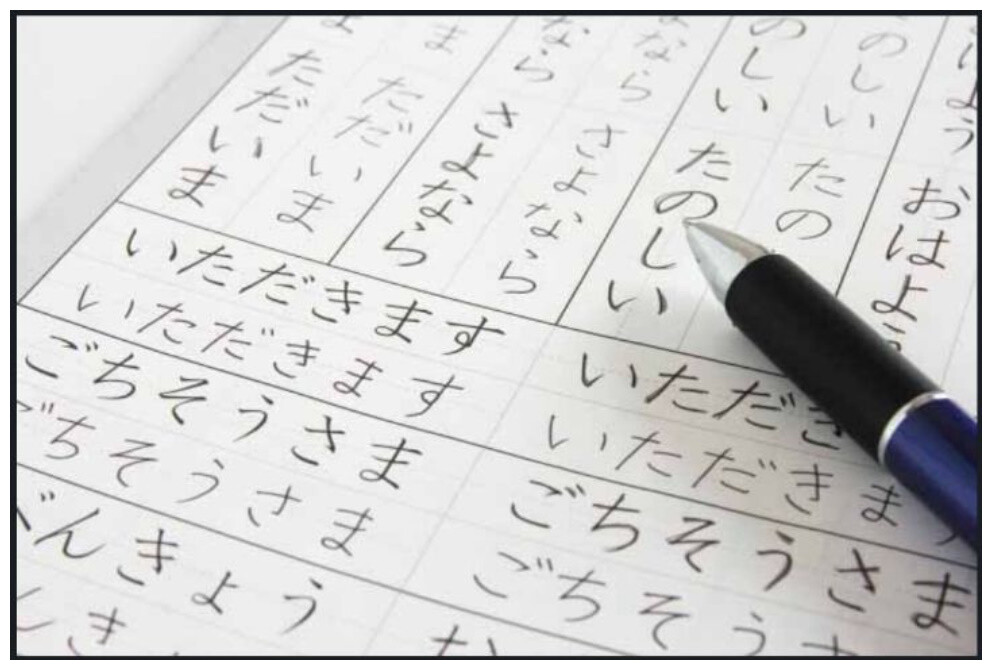 よう おはよう
のしい たの
のしい たのしい
なら さよなら
なら さよなら
ま ただいま
ま ただいま
いただきます いただき
いただきます いただきま
ごちそうさま ごちそうさま
ごちそうさま ごちそう
べんきょう
んき